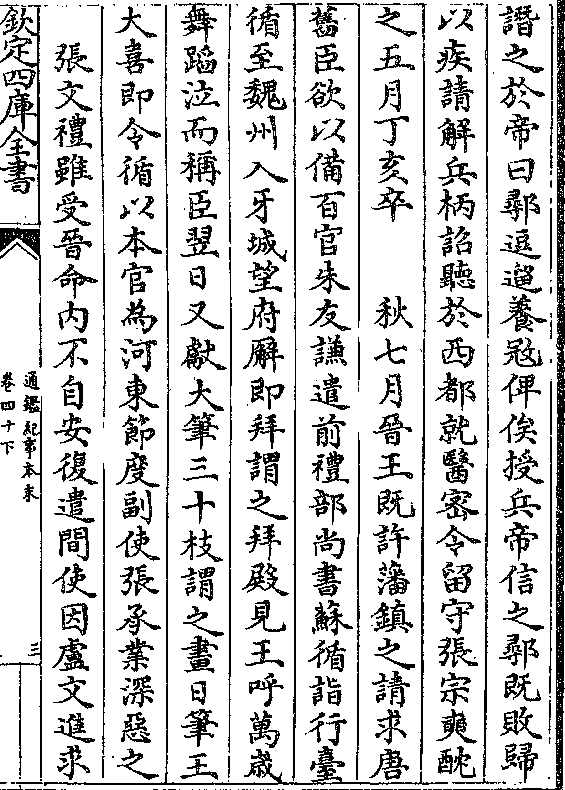 譖之於帝曰鄩逗遛養寇俾俟授兵帝信之鄩既敗歸
以疾請解兵柄詔聽於西都就醫密令留守張宗奭酖
之五月丁亥卒　　秋七月晉王既許藩鎮之請求唐
舊臣欲以備百官朱友謙遣前禮部尚書蘇循詣行臺
循至魏州入牙城望府廨即拜謂之拜殿見王呼萬歲
舞蹈泣而稱臣翌日又獻大筆三十枝謂之畫日筆王
大喜即令循以本官為河東節度副使張承業深惡之
張文禮雖受晉命内不自安復遣間使因盧文進求
欽定四庫全書
通鑑紀事本末
卷四十下
三